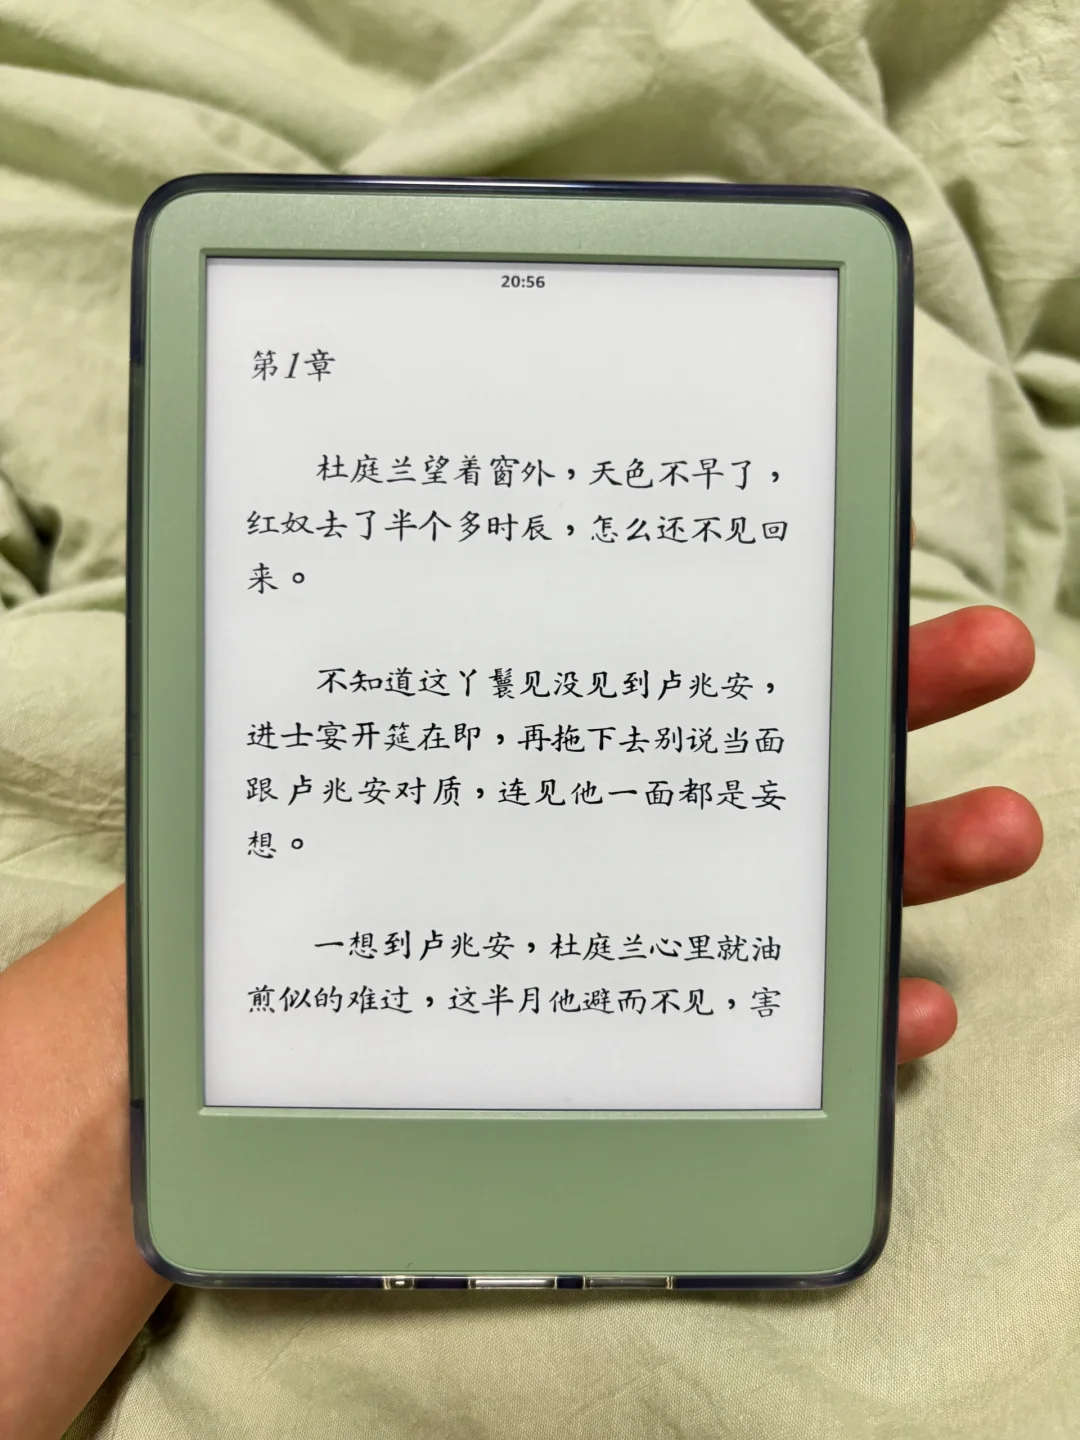 20:56
第1章
杜庭兰望着窗外，天色不早了，
红奴去了半个多时辰，怎么还不见回
来。
不知道这丫鬟见没见到卢兆安，
进士宴开筵在即，再拖下去别说当面
跟卢兆安对质，连见他一面都是妄
想。
一想到卢兆安，杜庭兰心里就油
煎似的难过，这半月他避而不见，害